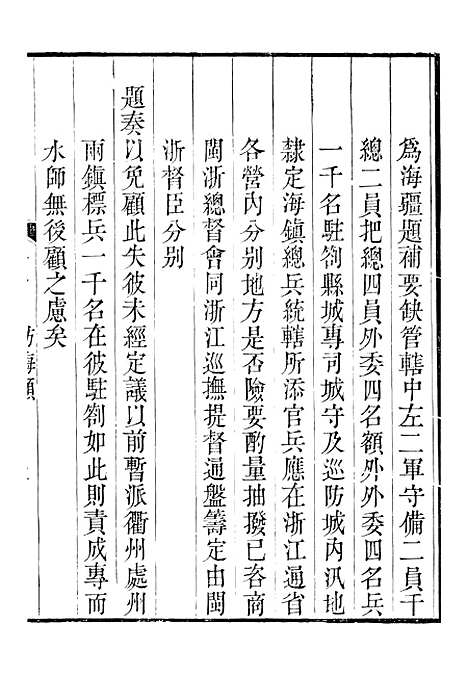 為海疆題補要缺管轄中左二軍守備二員千
總二員把總四員外委四名額外外委四名兵
一千名駐劄縣城專司城守及巡防城內汛地
隸定海鎮總兵統轄所添官兵應在浙江通省
各營內分別地方是否險要酌量抽撥已咨商
閩浙總督會同浙江巡撫提督通盤籌定由閩
浙督臣分別
題奏以免顧此失彼未經定議以前暫派衢州處州
兩鎮標兵一千名在彼駐劄如此則責成專而
水師無後顧之慮矣
防海